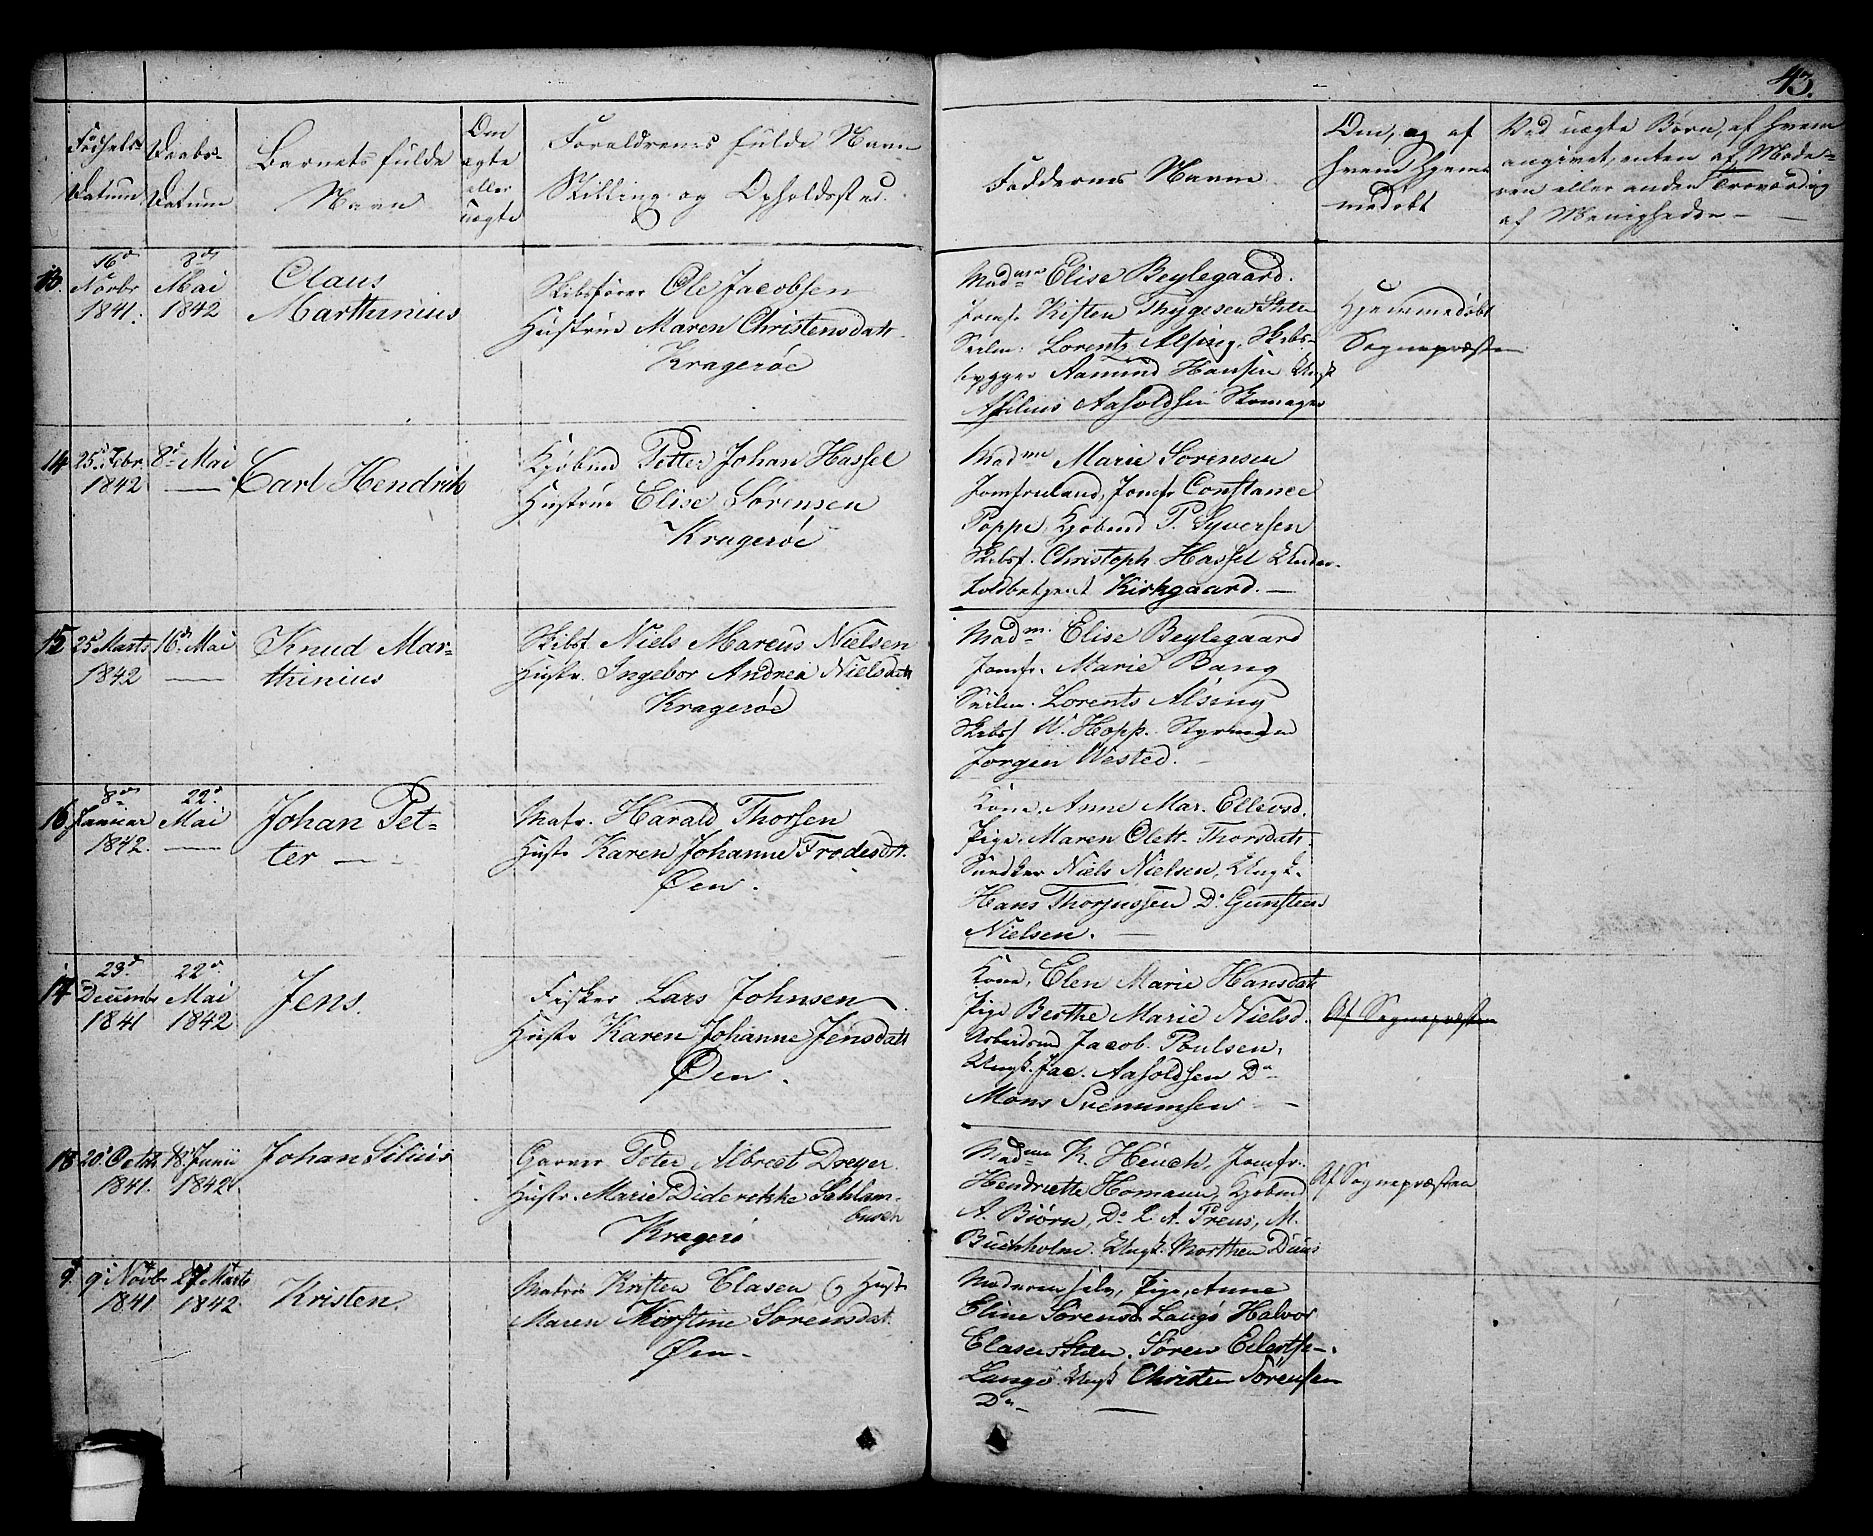 43.
Fødsels
Datum
Daabs-
Datum
Barnets fulde
Navn
Om
ægte
eller
uægte
Forældrenes fulde Navn
Stilling og Opholdssted.
Faddernes Navne
Om, og af
hvem hjem
medøbt
Ved uægte Børn, af hvem
angivet, enten af Mode-
ren eller anden Troværdig
af Menigheden —
13.
16de
Novbr
1841.
8de
Mai
1842
Claus
Marthinius
Skibsfører Ole Jacobsen
Hustrue Maren Christensdatr.
Kragerøe
Madme Elise Beylegaard.
Jomfr Kisten Thygesen
Seilm. Lorentz Alsing, Skibs-
bygger Aamund Hansen Ungk
Aslius Aasoldsen Skomager
Hjemmedøbt
Sognepræsten
14
25d Febr.
1842
8d Mai
—
Carl Hendrik
Kjøbmd Petter Johan Hassel
Hustrue Elise Sørensen
Kragerøe
Madme Marie Sørensen
Jomfruland, Jomfr Constance
Poppe, Kjøbmd P. Syversen
Skibsf. Christoph Hassel Under-
toldbetjent Kirkgaard. —
15
25d Marts
1842
16d Mai
—
Knud Mar-
thinius
Skibsf Niels Marcus Nielsen
Hustr. Ingebor Andrea Nielsdatr
Kragerøe
Madm. Elise Beylegaard
Jomfr. Marie Bang
Seilm. Lorents Alsing
Skibsf W. Hopp. Styrmand
Jørgen Wested.
16
8de
Januar
1842.
22d
Mai
—
Johan Pet-
ter —
Matr. Harald Thorsen
Hustr Karen Johanne Frodesdtr.
Øen.
Kone, Anne Mar. Ellevsd.
Pige Maren Olett. Thorsdatr.
Snedker Niels Nielsen, Ungk.
Hans Thorjussen Do Gunsteen
Nielsen. —
17
23d
Decembr
1841
22d
Mai
1842
Jens.
Fisker Lars Johnsen
Hustr Karen Johanne Jensdatr
Øen.
Kone, Elen Marie Hansdatr
Pige Berthe Marie Nielsd.
Arbeidsmd Jacob Poulsen,
Ungk. Jac. Aasoldsen Do
Mons Svenumsen —
Af Sognepræsten
18
20d Octbr
1841.
18d Junii
1842
Johan Silius
Garver Peter Albrect Dreyer
Hustr. Marie Diderikke Sahlam-
busch
Kragerø
Madme K. Heuch, Jomfr.
Hendriette Homann, Kjøbmd
A. Biørn, Do L. A. Preus, M.
Buchholm. Ungk. Morthen Duus
Af Sognepræsten
9d Novbr
1841
27 Marts
1842
Kristen.
Matros Kristen Clasen, og Hustr
Maren Kirstine Sørensdat.
Øen.
Moderen selv, Pige, Anne
Eline Sørensd. Langø Halvor
Clasen Øen. Søren Eilertse-.
Langø. Ungk Christen Sørensen
Do —